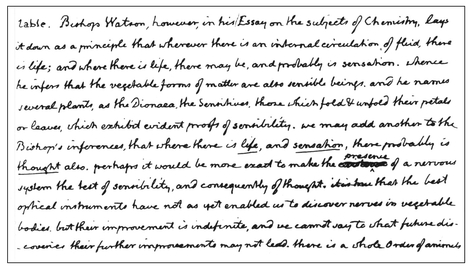 table. Bishop Watson, however, in his Essay on the subjects of Chemistry, lays
it down as a principle that wherever there is an internal circulation of fluid, there
is life; and where there is life, there may be, and probably is sensation. whence
he infers that the vegetable forms of matter are also sensible beings. and he names
several plants, as the Dionaea, the Sensitives, those which fold & unfold their petals
or leaves, which exhibit evident proofs of sensibility. we may add another to the
Bishop's inferences, that where there is life, and sensation, there probably is
thought also. perhaps it would be more exact to make the presence of a nervous
system the test of sensibility, and consequently of thought. it is true that the best
optical instruments have not as yet enabled us to discover nerves in vegetable
bodies. but their improvement is indefinite, and we cannot say to what future dis-
-coveries their further improvements may not lead. there is a whole Order of animals